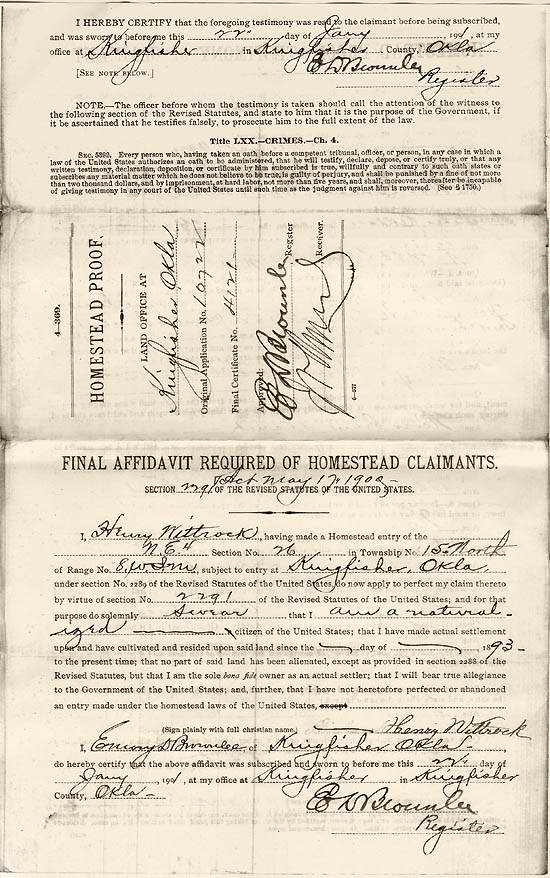 I HEREBY CERTIFY that the foregoing testimony was read to the claimant before being subscribed,
and was sworn to before me this 22" day of Jany, 1901, at my
office at Kingfisher in Kingfisher County, Okla
[SEE NOTE BELOW.] E D Brownlee
Register
NOTE.—The officer before whom the testimony is taken should call the attention of the witness to
the following section of the Revised Statutes, and state to him that it is the purpose of the Government, if
it be ascertained that he testifies falsely, to prosecute him to the full extent of the law.
Title LXX.—CRIMES.—Ch. 4.
SEC. 5392. Every person who, having taken an oath before a competent tribunal, officer, or person, in any case in which a
law of the United States authorizes an oath to be administered, that he will testify, declare, depose, or certify truly, or that any
written testimony, declaration, deposition, or certificate by him subscribed is true, willfully and contrary to such oath states or
subscribes any material matter which he does not believe to be true, is guilty of perjury, and shall be punished by a fine of not more
than two thousand dollars, and by imprisonment, at hard labor, not more than five years, and shall, moreover, thereafter be incapable
of giving testimony in any court of the United States until such time as the judgment against him is reversed. (See § 1750.)
4—369.
HOMESTEAD PROOF.
LAND OFFICE AT
Kingfisher Okla
Original Application No. 10722
Final Certificate No. 4121
Approved:
E D Brownlee Register
Receiver.
6—577
FINAL AFFIDAVIT REQUIRED OF HOMESTEAD CLAIMANTS.
Act May 17 1900—
SECTION 2291 OF THE REVISED STATUTES OF THE UNITED STATES.
I, Henry Wittrock, having made a Homestead entry of the
N.E.4 Section No. 26 in Township No. 15 North
of Range No. 8 W I M, subject to entry at Kingfisher, Okla
under section No. 2289 of the Revised Statutes of the United States, do now apply to perfect my claim thereto
by virtue of section No. 2291 of the Revised Statutes of the United States; and for that
purpose do solemnly Swear that I am a natural-
ized citizen of the United States; that I have made actual settlement
upon and have cultivated and resided upon said land since the day of , 1893—
to the present time; that no part of said land has been alienated, except as provided in section 2288 of the
Revised Statutes, but that I am the sole bona fide owner as an actual settler; that I will bear true allegiance
to the Government of the United States; and, further, that I have not heretofore perfected or abandoned
an entry made under the homestead laws of the United States, except
(Sign plainly with full christian name.) Henry Wittrock
I, Emory D Brownlee of Kingfisher Okla—
do hereby certify that the above affidavit was subscribed and sworn to before me this 22" day of
Jany, 1901, at my office at Kingfisher in Kingfisher
County, Okla—
E D Brownlee
Register